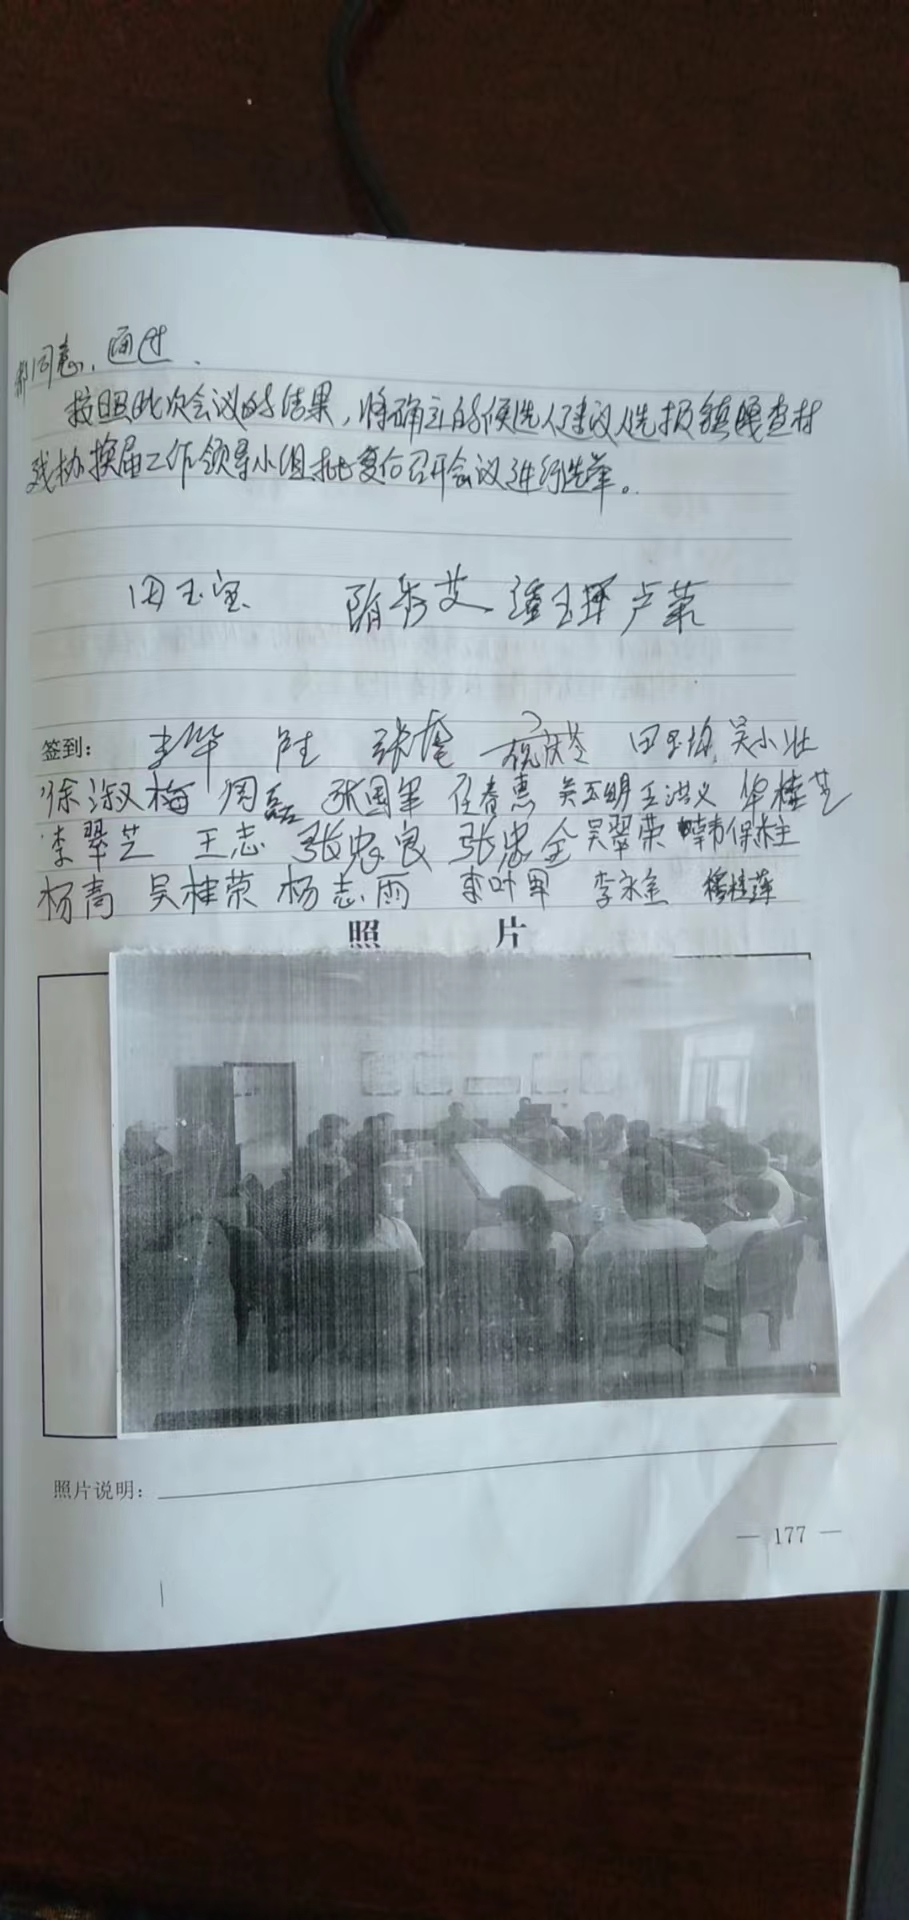 都同意，通过.
按照此次会议的结果，将确立的候选人建议人选报镇嘎查村
残协换届工作领导小组批复后召开会议进行选举。
田玉宝 隋秀艾 潘玉琢 卢荣
签到： 张 田玉 吴小壮
徐淑梅 周磊 张国军 任春惠 吴玉明 王洪义 华桂芝
李翠芝 王志 张忠良 张忠全 吴翠荣 韩保主
杨高 吴桂荣 杨志雨 李叶军 李永全 穆桂莲
照 片
照片说明：
— 177 —